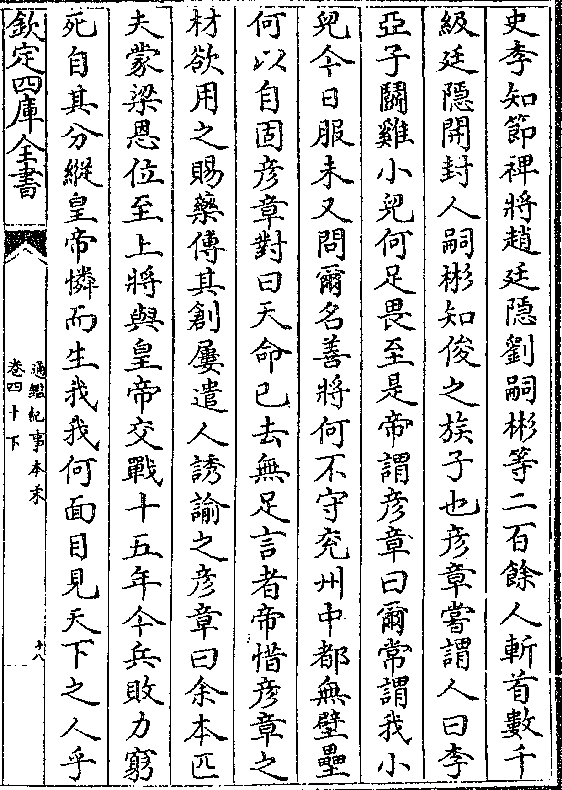 史李知節裨將趙廷隱劉嗣彬等二百餘人斬首數千
級廷隱開封人嗣彬知俊之族子也彦章嘗謂人曰李
亞子鬭雞小兒何足畏至是帝謂彦章曰爾常謂我小
兒今日服未又問爾名善將何不守兖州中都無壁壘
何以自固彦章對曰天命已去無足言者帝惜彦章之
材欲用之賜藥傅其創屢遣人誘諭之彦章曰余本匹
夫蒙梁恩位至上將與皇帝交戰十五年今兵敗力窮
死自其分縱皇帝憐而生我我何面目見天下之人乎
欽定四庫全書
通鑑紀事本末
卷四十下
十八